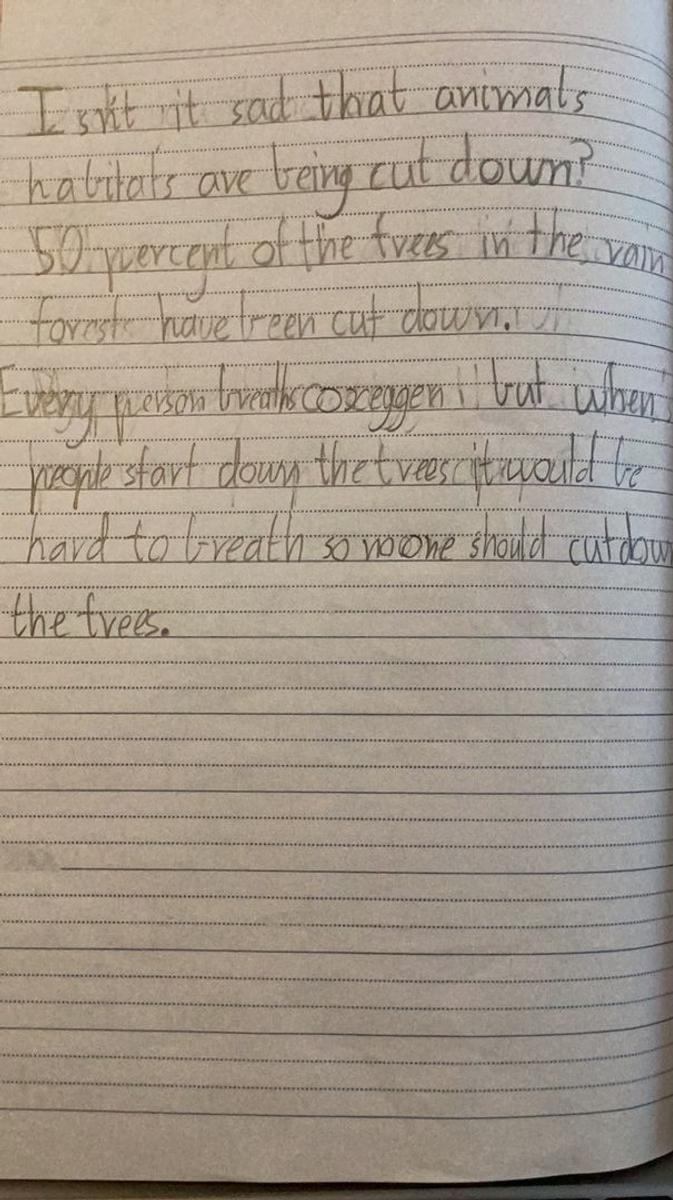 Isn't it sad that animals
habitats are being cut down?
50 percent of the trees in the rain
forest have been cut down.
Every person breaths oxeggen but when
people start down the trees it would be
hard to breath so no one should cut down
the trees.